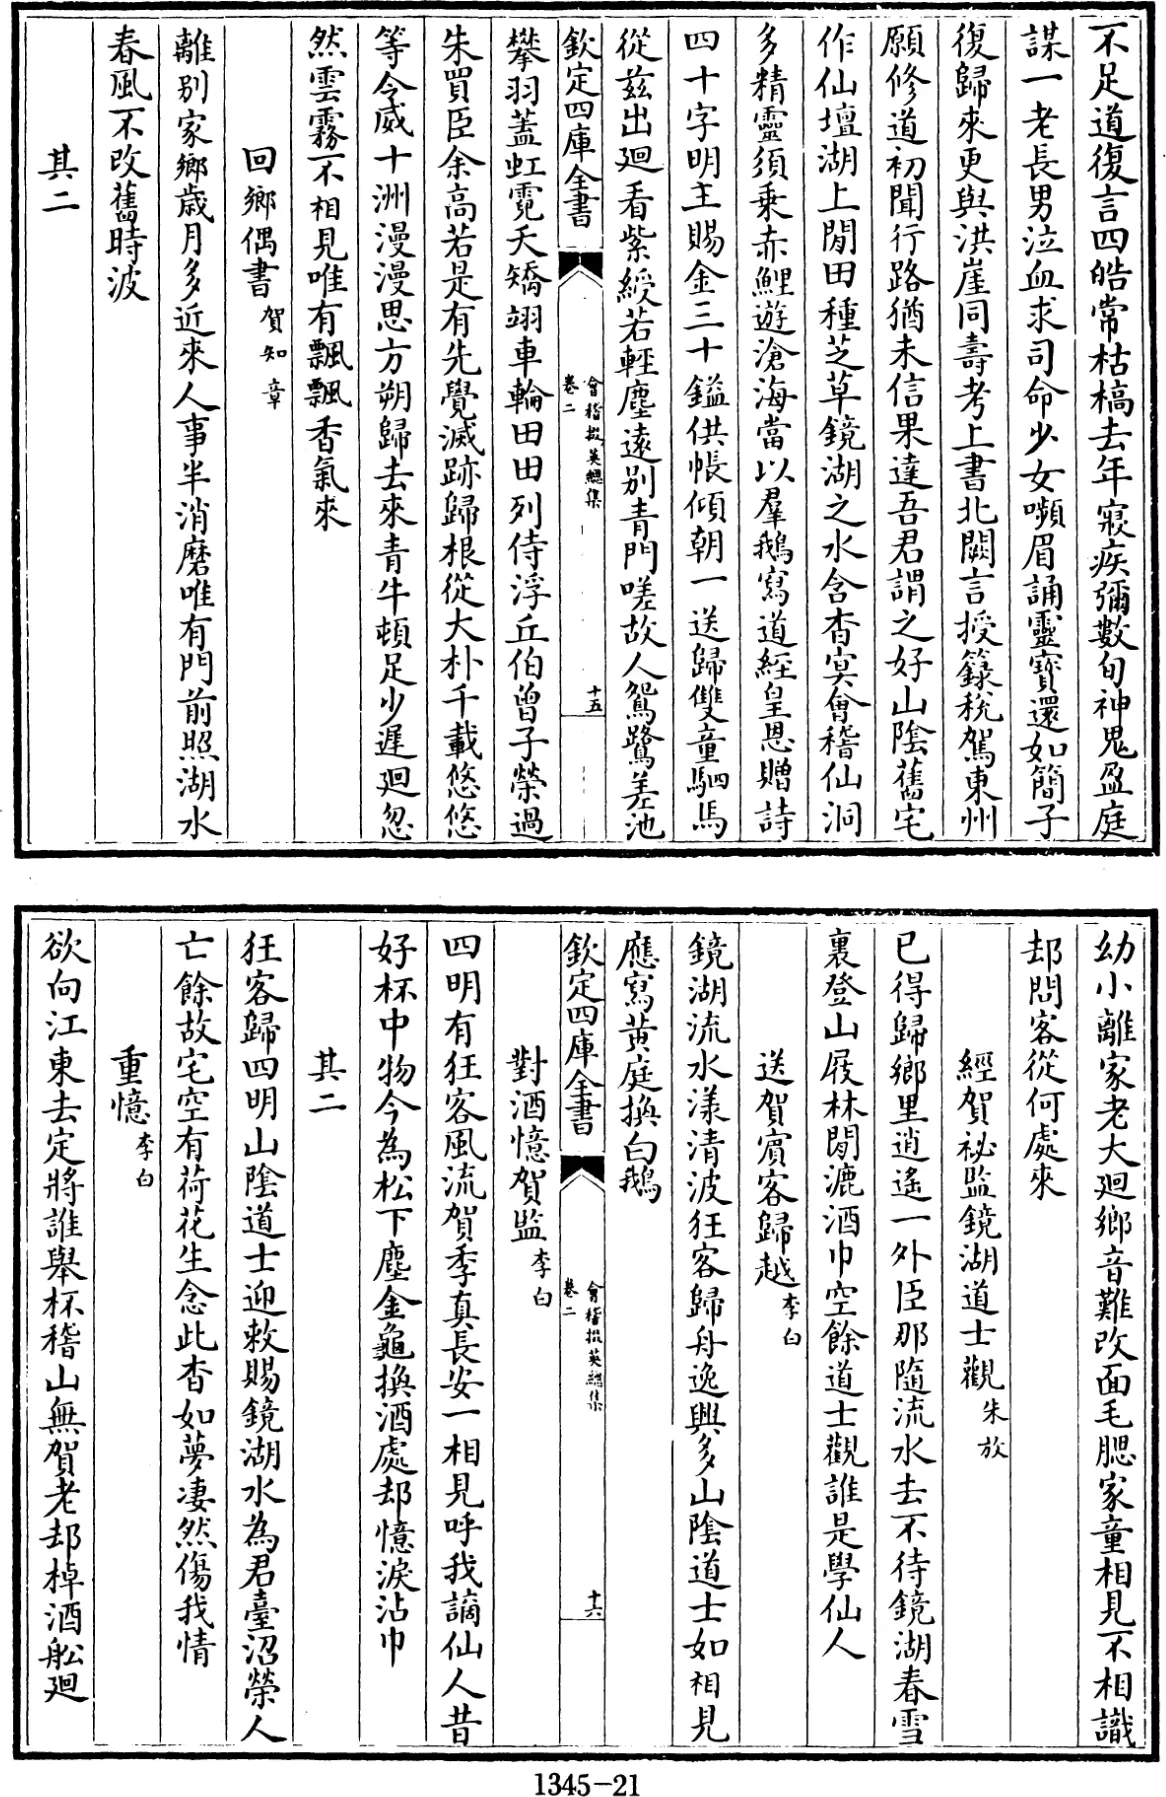 不足道復言四皓常枯槁去年寢疾彌數旬神鬼盈庭
謀一老長男泣血求司命少女嚬眉誦靈寳還如簡子
復歸來更與洪崖同壽考上書北闕言授籙稅駕東州
願修道初聞行路猶未信果達吾君謂之好山陰舊宅
作仙壇湖上閒田種芝草鏡湖之水含杳㝠會稽仙洞
多精靈須乗赤鯉遊滄海當以羣鵝寫道經皇恩贈詩
四十字明主賜金三十鎰供帳傾朝一送歸雙童駟馬
從兹出廻看紫綬若輕塵遠别青門嗟故人鴛鷺差池
欽定四庫全書
會稽掇英總集
卷二
十五
攀羽蓋虹霓夭矯翊車輪田田列侍浮丘伯曾子榮過
朱買臣余高若是有先覺滅跡歸根從大朴千載悠悠
等令威十洲漫漫思方朔歸去來青牛頓足少遲廻忽
然雲霧不相見唯有飄飄香氣來
回鄉偶書 賀知章
離别家鄉歳月多近來人事半消磨唯有門前照湖水
春風不改舊時波
其二
幼小離家老大廻鄉音難改面毛腮家童相見不相識
却問客從何處來
經賀祕監鏡湖道士觀 朱放
已得歸鄉里逍遥一外臣那隨流水去不待鏡湖春雪
裏登山屐林間漉酒巾空餘道士觀誰是學仙人
送賀賔客歸越 李白
鏡湖流水漾清波狂客歸舟逸興多山陰道士如相見
應寫黄庭換白鵝
欽定四庫全書
會稽掇英總集
卷二
十六
對酒憶賀監 李白
四明有狂客風流賀季真長安一相見呼我謫仙人昔
好杯中物今為松下塵金龜換酒處却憶淚沾巾
其二
狂客歸四明山陰道士迎敕賜鏡湖水為君臺沼榮人
亡餘故宅空有荷花生念此杳如夢凄然傷我情
重憶 李白
欲向江東去定將誰舉杯稽山無賀老却棹酒船廻
1345-21